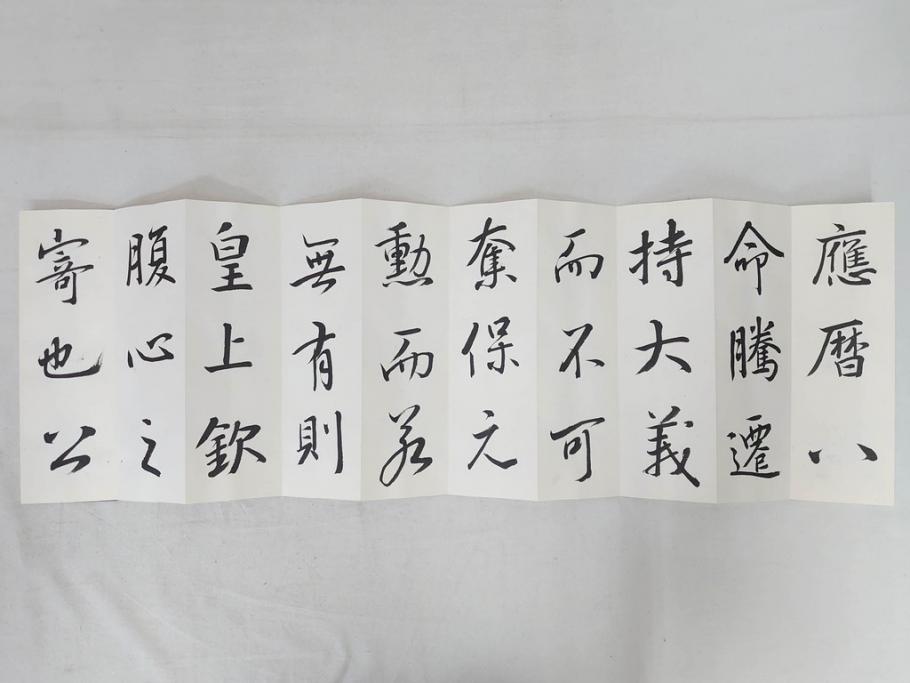 應暦八
命騰遷
持大義
而不可
奪保元
勲而若
無有則
皇上欽
腹心之
寄也公